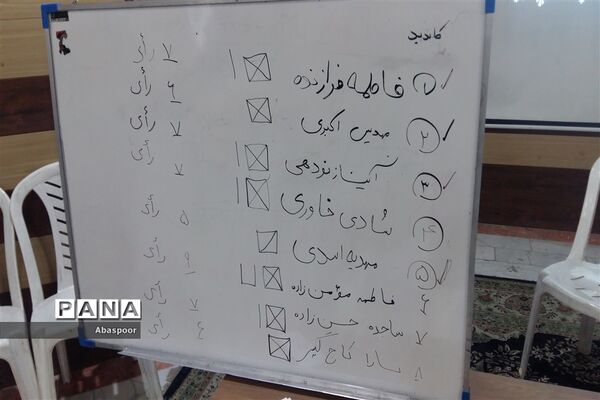 کاندید
۱ فاطمه فرازنده ۷ رأی
۲ مهدیس اکبری ۶ رأی
۳ آیناز نودهی ۷ رأی
۴ شادی خاوری ۷ رأی
۵ مهدیه اسدی ۵ رأی
۶ فاطمه مؤمن زاده ۹ رأی
۷ ساجده حسن زاده ۷ رأی
۸ سارا کاخ گیر ۴ رأی
PANA
Abaspoor